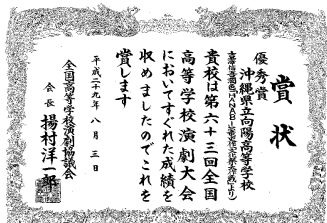 賞状
優秀賞
沖縄県立向陽高等学校
貴校は第六十三回全国
高等学校演劇大会
においてすぐれた成績を
収めましたのでこれを
賞します
平成二十九年 八月 三日
全国高等学校演劇協議会
会長 揚村洋一郎